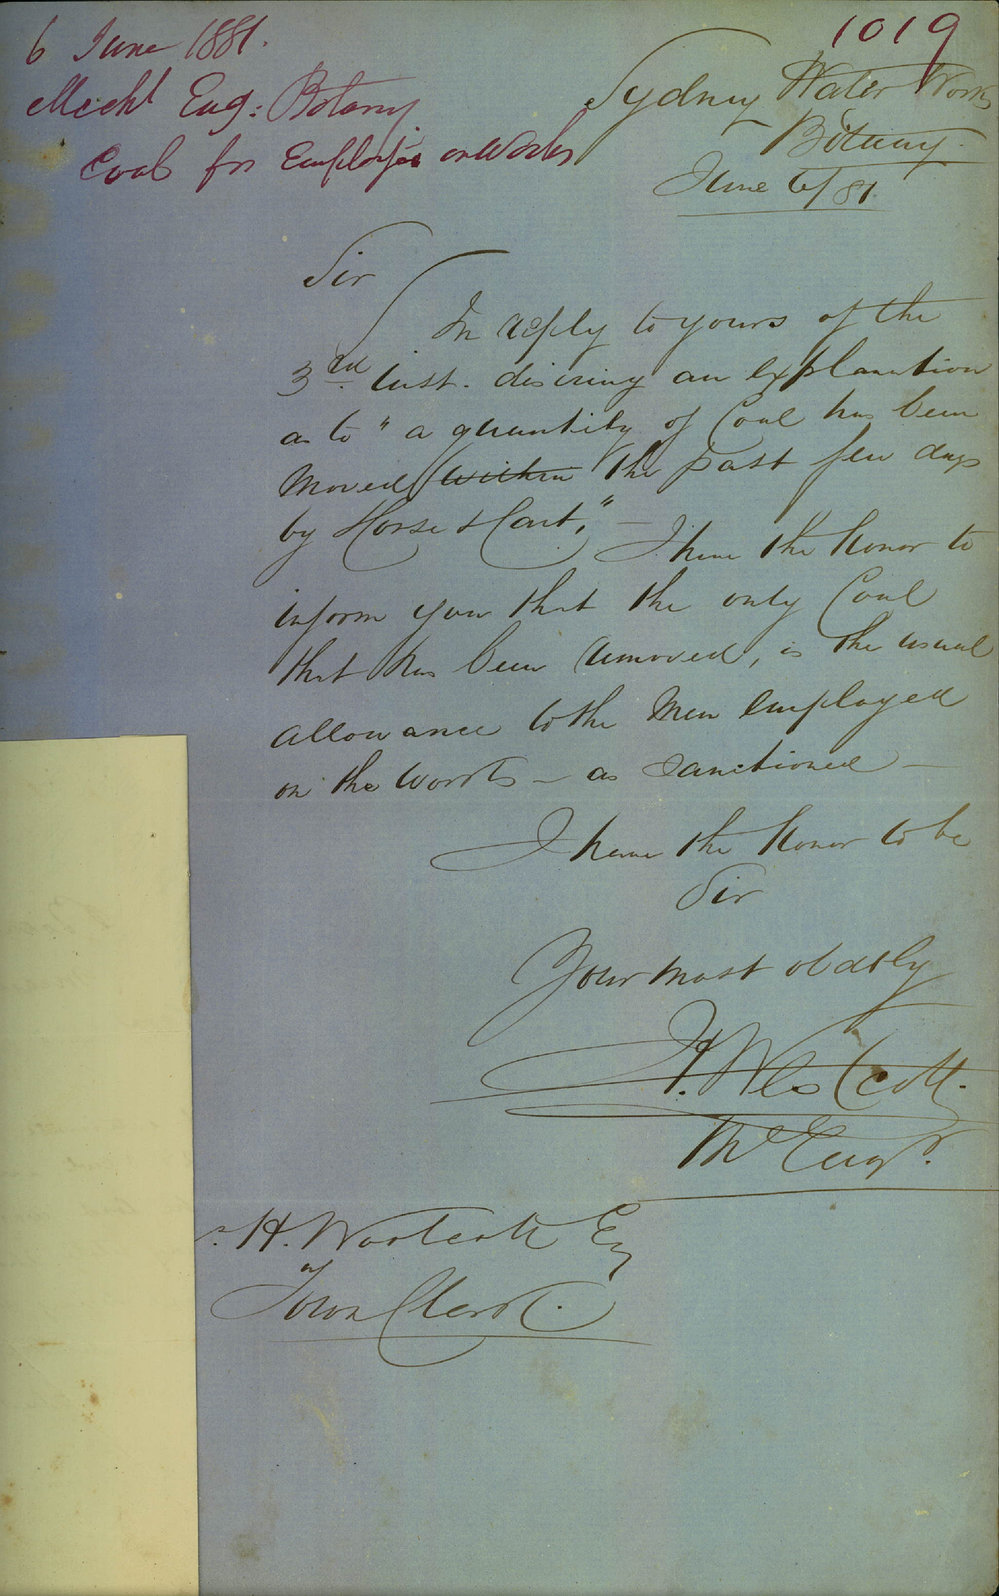 6 June 1881.
1019
Mechl Eng: Botany
Coal for Employés on Works
Sydney Water Works
Botany.
June 6/81.
Sir
In reply to yours of the
3rd inst. desiring an explanation
as to "a quantity of Coal has been
moved within the past few days
by Horse & Cart," — I have the honor to
inform you that the only Coal
that has been removed, is the usual
allowance to the Men employed
on the works — as sanctioned —
I have the honor to be
Sir
Your most obdtly
F. Westcott.
Me Engr.
H. Worboys Esq
Town Clerk.